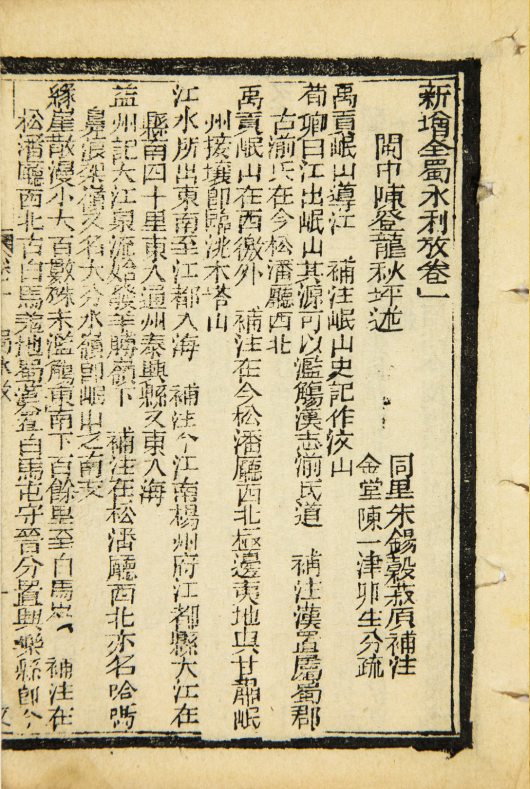 新增全蜀水利攷卷一
閬中陳登龍秋坪述
同里朱錫穀菽原補注
金堂陳一津卯生分疏
禹貢岷山導江　補注岷山史記作汶山
荀卿曰江出岷山其源可以濫觴漢志湔氐道　補注漢置屬蜀郡
古湔氐在今松潘廳西北
禹貢岷山在西徼外　補注在今松潘廳西北極邊夷地與甘肅岷
州接壤即臨洮木塔山
江水所出東南至江都入海　補注今江南楊州府江都縣大江在
縣南四十里東入通州泰興縣又東入海
益州記大江泉流始發羊膊嶺下　補注在松潘廳西北亦名哈嗎
鼻浪架嶺又名大分水嶺即岷山之南支
緣崖散漫小大百數殊未濫觴東南下百餘里至白馬嶺　補注在
松潘廳西北古白馬羌地蜀漢置白馬屯守晉分置興樂縣即今